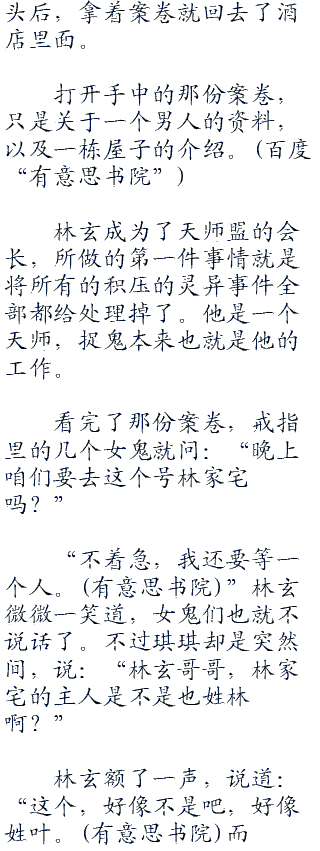 头后，拿着案卷就回去了酒
店里面。
打开手中的那份案卷，
只是关于一个男人的资料，
以及一栋屋子的介绍。(百度
“有意思书院”)
林玄成为了天师盟的会
长，所做的第一件事情就是
将所有的积压的灵异事件全
部都给处理掉了。他是一个
天师，捉鬼本来也就是他的
工作。
看完了那份案卷，戒指
里的几个女鬼就问：“晚上
咱们要去这个号林家宅
吗？”
“不着急，我还要等一
个人。(有意思书院)”林玄
微微一笑道，女鬼们也就不
说话了。不过琪琪却是突然
间，说：“林玄哥哥，林家
宅的主人是不是也姓林
啊？”
林玄额了一声，说道：
“这个，好像不是吧，好像
姓叶。(有意思书院)而